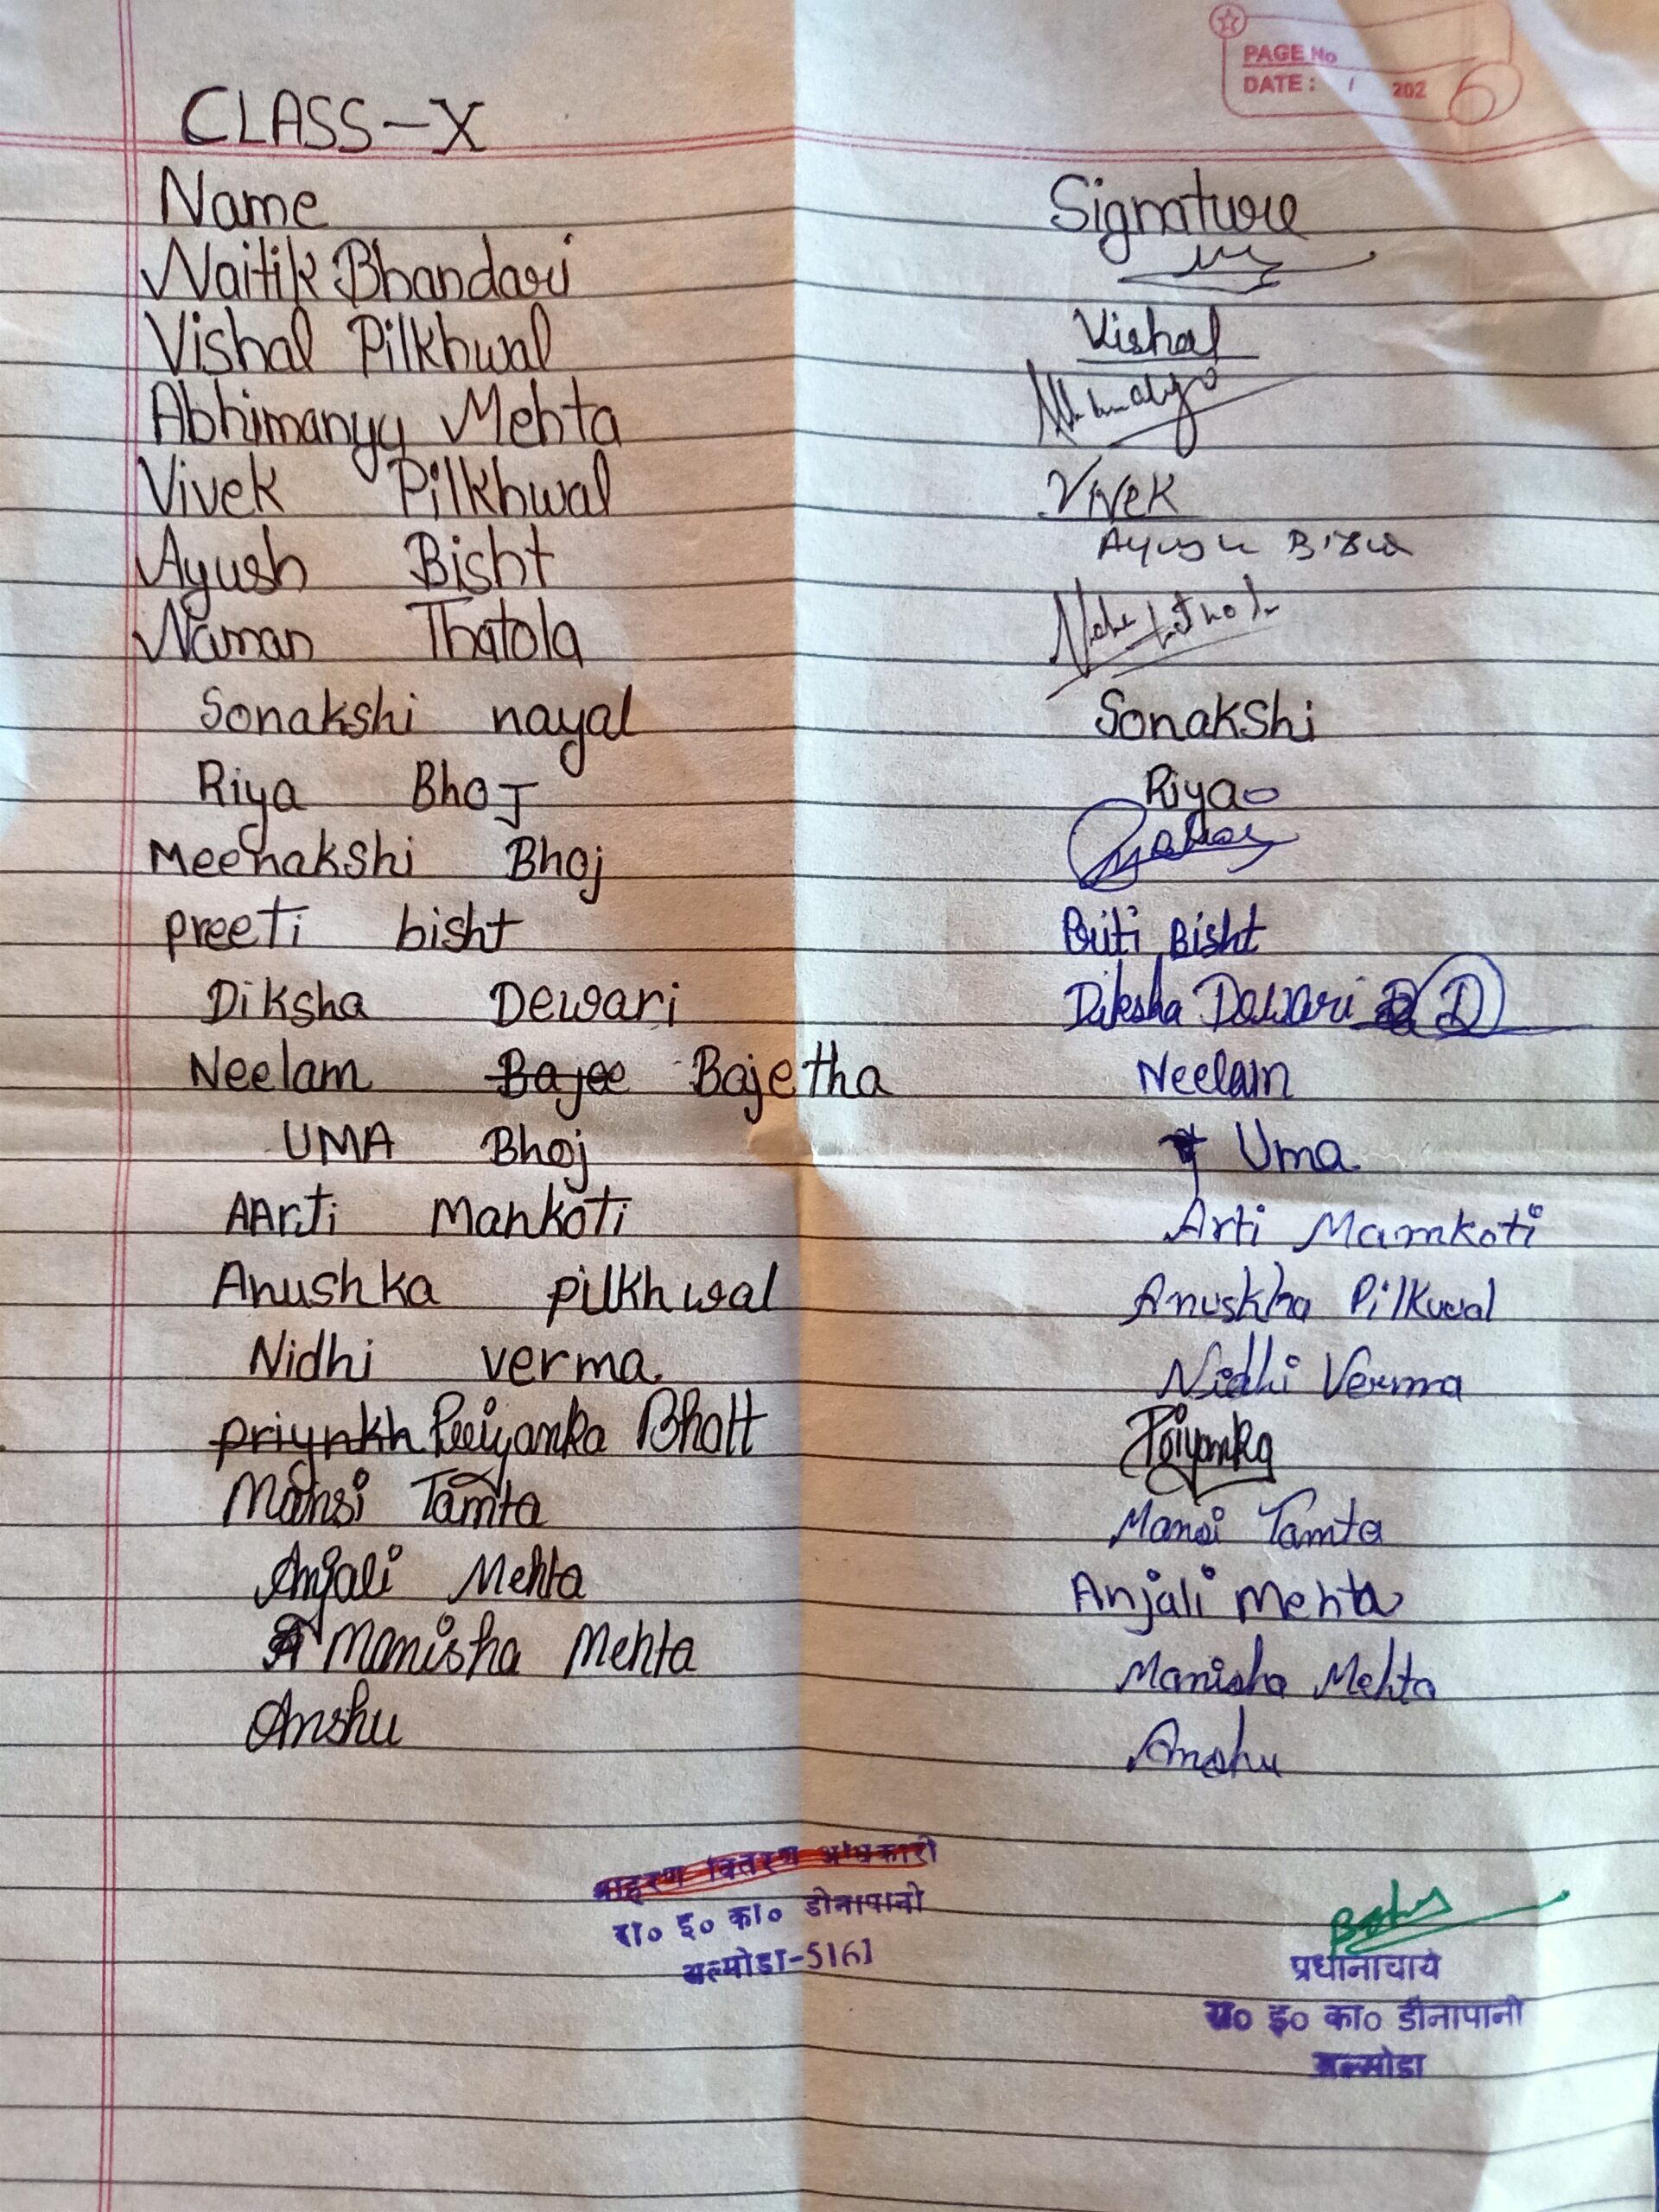 PAGE No
DATE: / 202 6
CLASS-X
Name Signature
Naitik Bhandari
Vishal Pilkhwal Vishal
Abhimanyu Mehta
Vivek Pilkhwal Vivek
Ayush Bisht Ayush Bisht
Naman Thatola
Sonakshi nayal Sonakshi
Riya Bhoj Riya
Meenakshi Bhoj
preeti bisht Priti Bisht
Diksha Dewari Diksha Dewari D
Neelam Bajee Bajetha Neelam
UMA Bhoj Uma
AArti Mankoti Arti Mamkoti
Anushka pilkhwal Anuskha Pilkwal
Nidhi verma. Nidhi Verma
priynkh Priyanka Bhatt Priyanka
Mansi Tamta Mansi Tamta
Anjali Mehta Anjali Mehta
Manisha Mehta Manisha Mehta
Anshu Anshu
आहरण वितरण अधिकारी
रा० इ० का० डीनापानी
अल्मोडा-5161
प्रधानाचार्य
रा० इ० का० डीनापानी
अल्मोडा